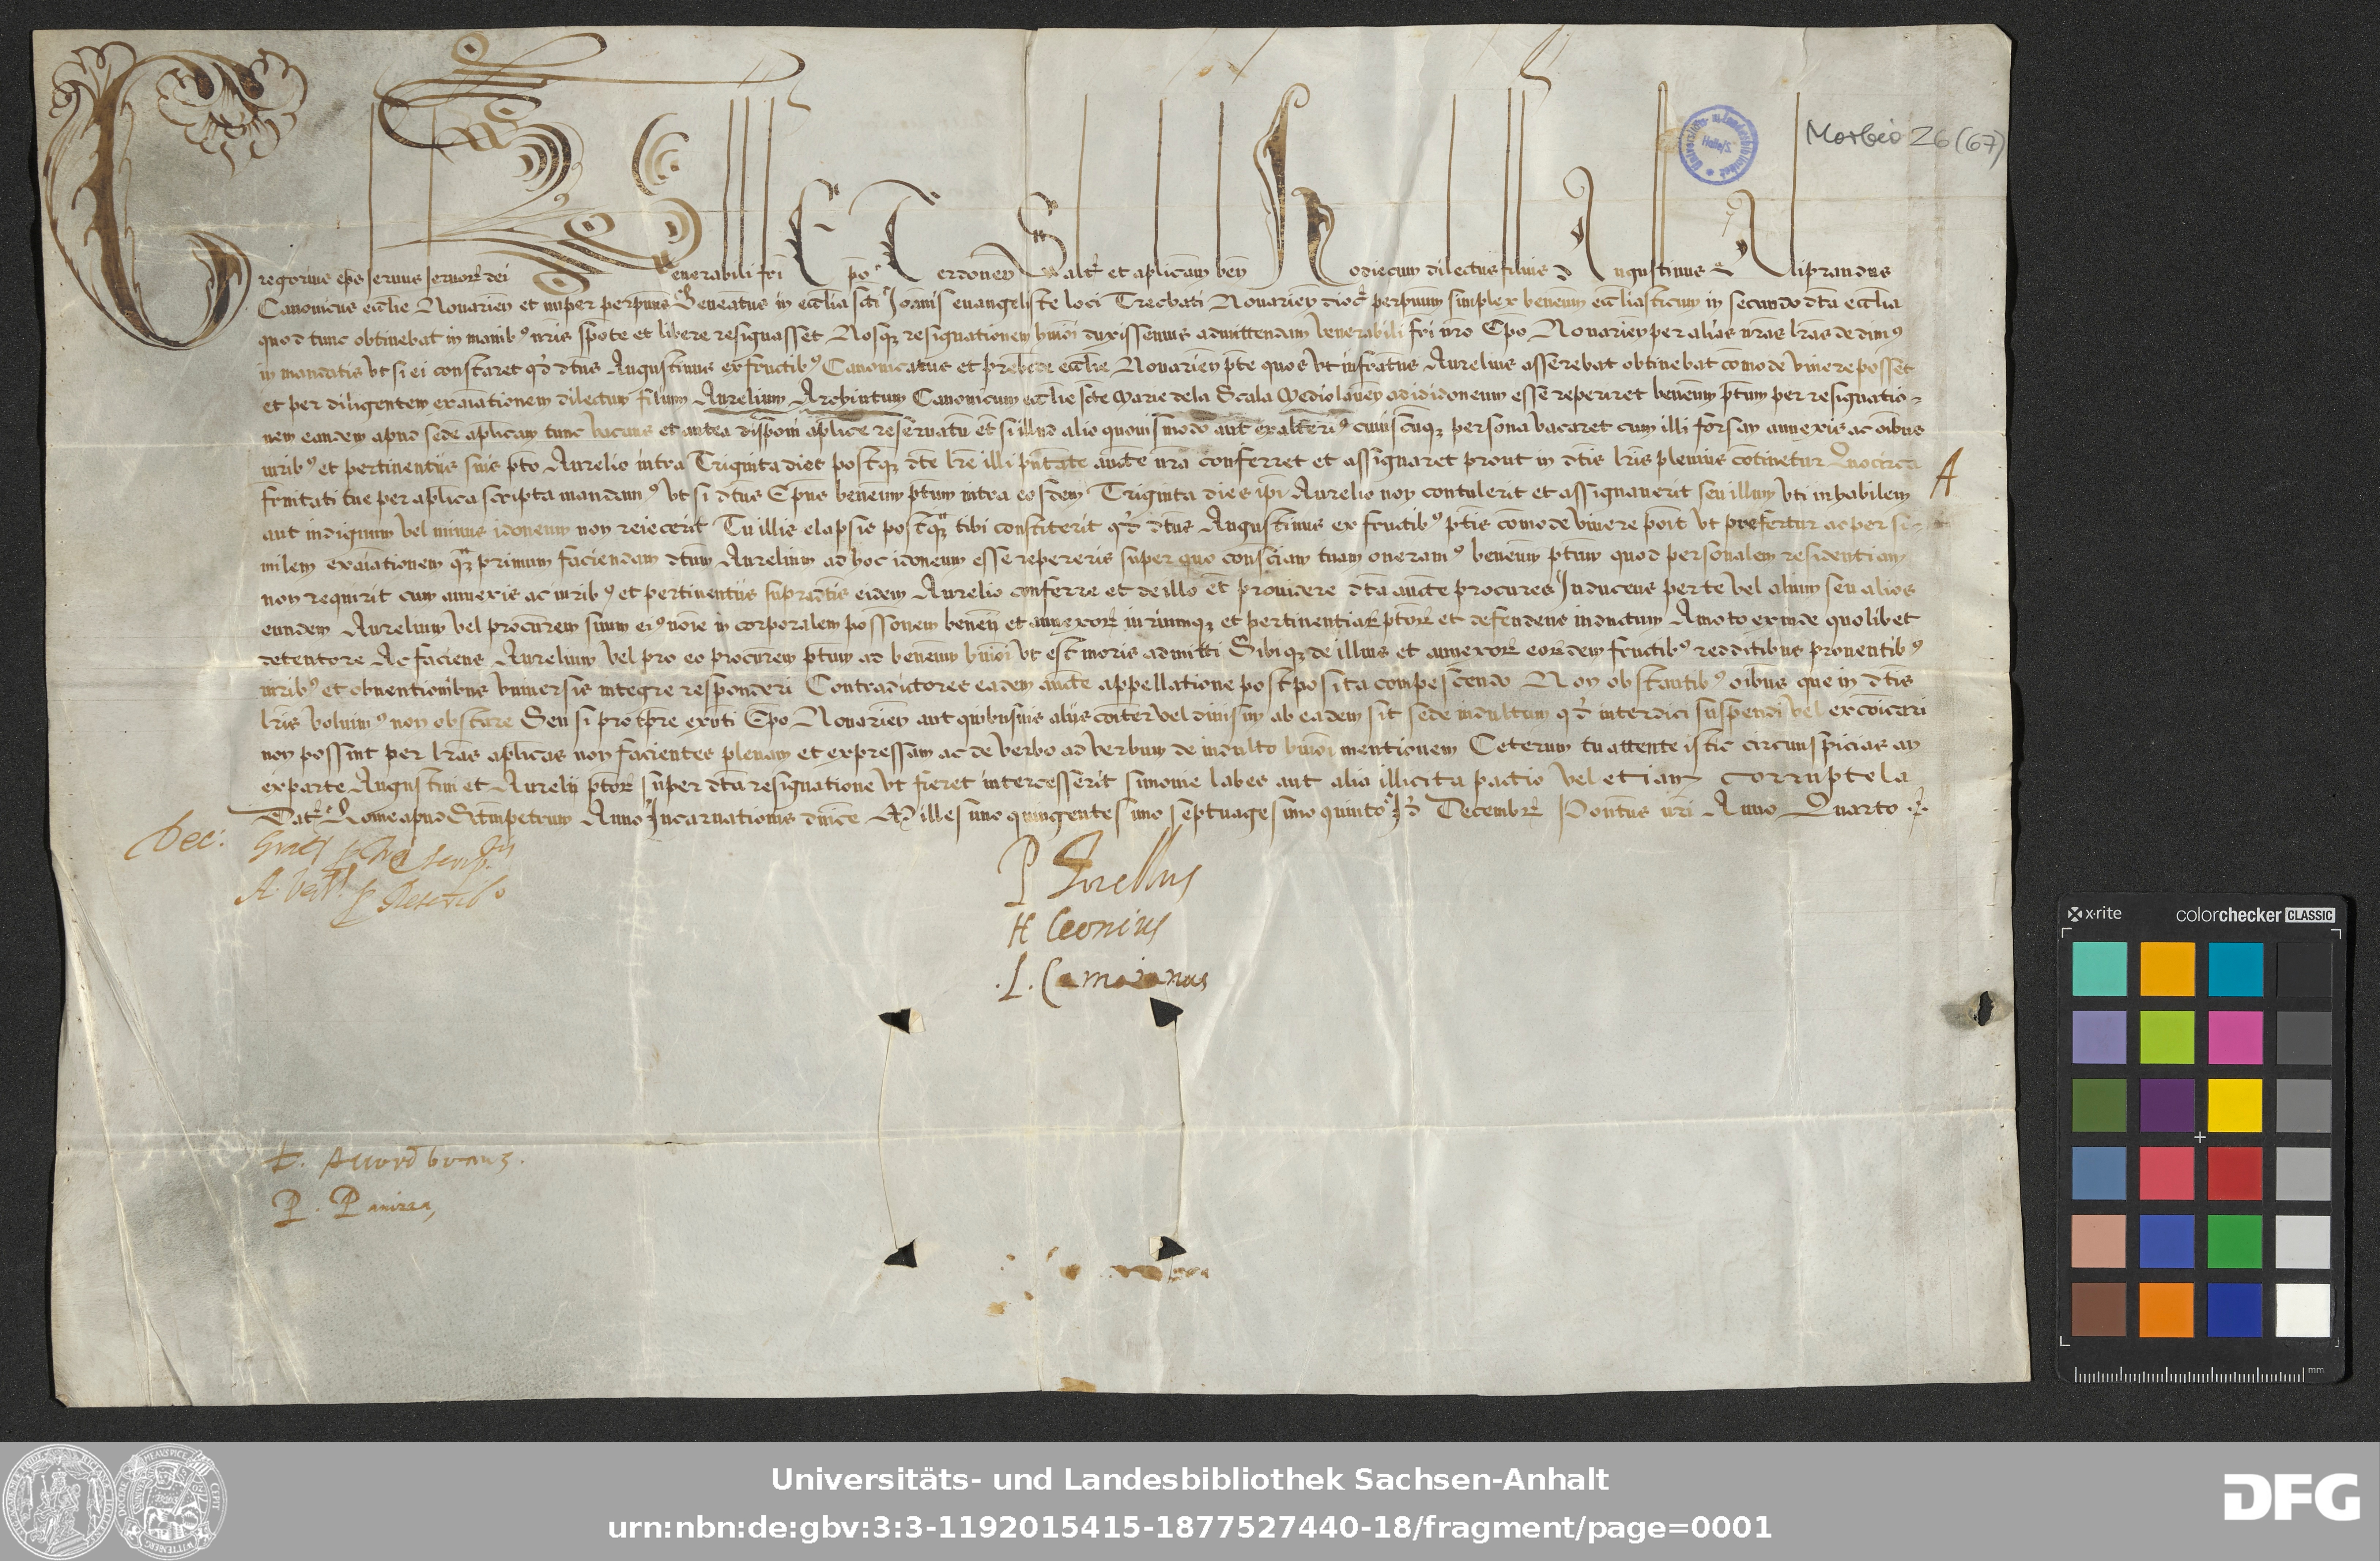 Morbio 26 (67)
Gregorius ep̄s seruus seruoꝝ dei Venerabili fri Ep̄o Terdoneñ Salt̄ et ap̄licam beñ Hodie cum dilectus filius Augustinus Aliprandus
Canonicus ecc̄lie Nouarieñ et nuper perpuus Beneatus in ecc̄lia sc̄ti Joan̄is euangeliste loci Trecbati Nouarieñ dioc̄ perpuum simplex beneum ecc̄liasticum in secundo dc̄ta ecc̄lia
quod tunc obtinebat in manibꝰ nr̄is sponte et libere resignasset Nosqꝫ resignationem huiōi duxissemus admittendam Venerabili fr̄i nr̄o Ep̄o Nouarieñ per alias nr̄as lr̄as dedimꝰ
in mandatis vt si ei constaret qđ dc̄tus Augustinus ex fructibꝰ Canonicatus et prebende ecc̄lie Nouarieñ pte quos vt infrat̄us Aurelius asserebat obtinebat com̄ode viuere posset
et per diligentem exaīationem dilectum filium Aurelium Archintum Canonicum ecc̄lie sc̄te Marie dela Scala Mediolaneñ ad id idoneum esse reperiret beneum pt̄um per resignatio-
nem eandem apud sedē ap̄licam tunc vacans et antea disponi ap̄lice reseruatū et si illud alio quouismodo aut ex alteriꝰ cuiuscūqꝫ persona vacaret cum illi forsan annexis ac oībus
iuribꝰ et pertinentijs suis pto Aurelio intra Triginta dies postqꝫ dc̄te lr̄e illi pn̄tate auctē nr̄a conferret et assignaret prout in dc̄tis lr̄is plenius cōtinetur Quocirca
frn̄itati tue per ap̄lica scripta mandamꝰ vt si dc̄tus Ep̄us beneum pt̄um intra eosdem Triginta dies ip̄i Aurelio non contulerit et assignauerit seu illum vti inhabilem
aut indignum vel minus idoneum non reiecerit Tu illis elapsis postqꝫ tibi constiterit qđ dc̄tus Augustinus ex fructibꝰ pt̄is com̄ode viuere poīt vt prefertur ac per si-
milem exaīationem qꝫ primum faciendam dc̄tum Aurelium ad hoc idoneum esse repereris super quo consciam tuam oneramꝰ beneum pt̄um quod personalem residentiam
non requirit cum annexis ac iuribꝰ et pertinentijs supradc̄tis eidem Aurelio conferre et de illo et̄ prouidere dc̄ta auctē procures Inducens per te vel alium seu alios
eundem Aurelium vel procurem suum eiꝰ noīe in corporalem possōnem benen̄ et annexoꝝ iuriumqꝫ et pertinentiaꝝ pt̄oꝝ et defendens inductum Amoto exinde quolibet
detentore Ac faciens Aurelium vel pro eo procurem pt̄um ad beneum huiōi vt est moris admitti Sibiqꝫ de illius et annexoꝝ eoꝝdem fructibꝰ redditibus prouentibꝰ
iuribꝰ et obuentionibus vniuersis integre responderi Contradictores eadem auctē appellatione postposita compescendo Non obstantibꝰ oībus que in dc̄tis
lr̄is voluimꝰ non obstare Seu si pro tpre ex̄nti Ep̄o Nouarieñ aut quibusuis alijs cōiter vel diuisim ab eadem sit sede indultum qđ interdici suspendi vel excōicari
non possint per lr̄as ap̄licas non facientes plenam et expressam ac de verbo ad verbum de indulto huiōi mentionem Ceterum tu attente istic circunspicias an
ex parte Augustini et Aurelij pt̄oꝝ super dc̄ta resignatione vt fieret intercesserit simonie labes aut alia illicita pactio vel etiam corruptela
Dat̄ Rome apud Sc̄tmpetrum Anno Incarnationis dn̄ice Millesimo quingentesimo septuagesimo quinto Id̄ Decembr̄ Pontūs nr̄i Anno Quarto
A
Dec:
P
H Ceonius
L. Camaianus
Universitäts- und Landesbibliothek Sachsen-Anhalt
urn:nbn:de:gbv:3:3-1192015415-1877527440-18/fragment/page=0001
DFG
x·rite colorchecker CLASSIC
mm